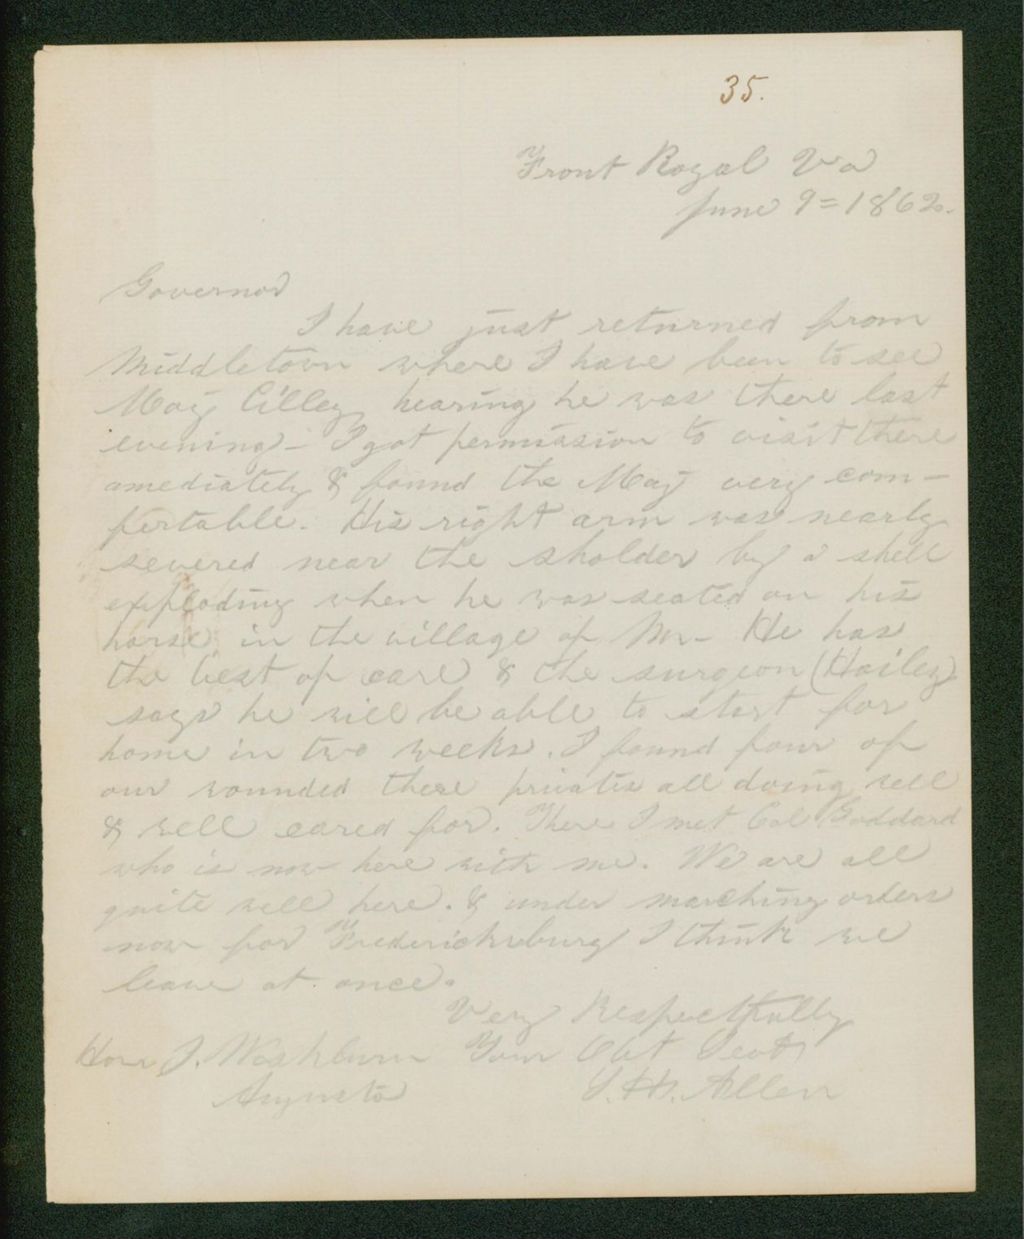 35.
Front Royal Va
June 9 = 1862.
Governor
I have just returned from
Middletown where I have been to see
Maj Cilley, hearing he was there last
evening - I got permission to visit there
amediately & found the Maj very com-
fertable. His right arm was nearly
severed near the sholder by a shell
exploding when he was seated on his
horse in the village of M- He has
the best of care & the surgeon (Hailey)
says he will be able to start for
home in two weeks. I found four of
our wounded there privates all doing well
& well cared for. There I met Col Goddard
who is now here with me. We are all
quite well here. & under marching orders
now for Fredericksburg I think we
leave at once.
Very Respectfully
Hon I. Washburn Your Obt Sevt
Augusta
S. H. Allen